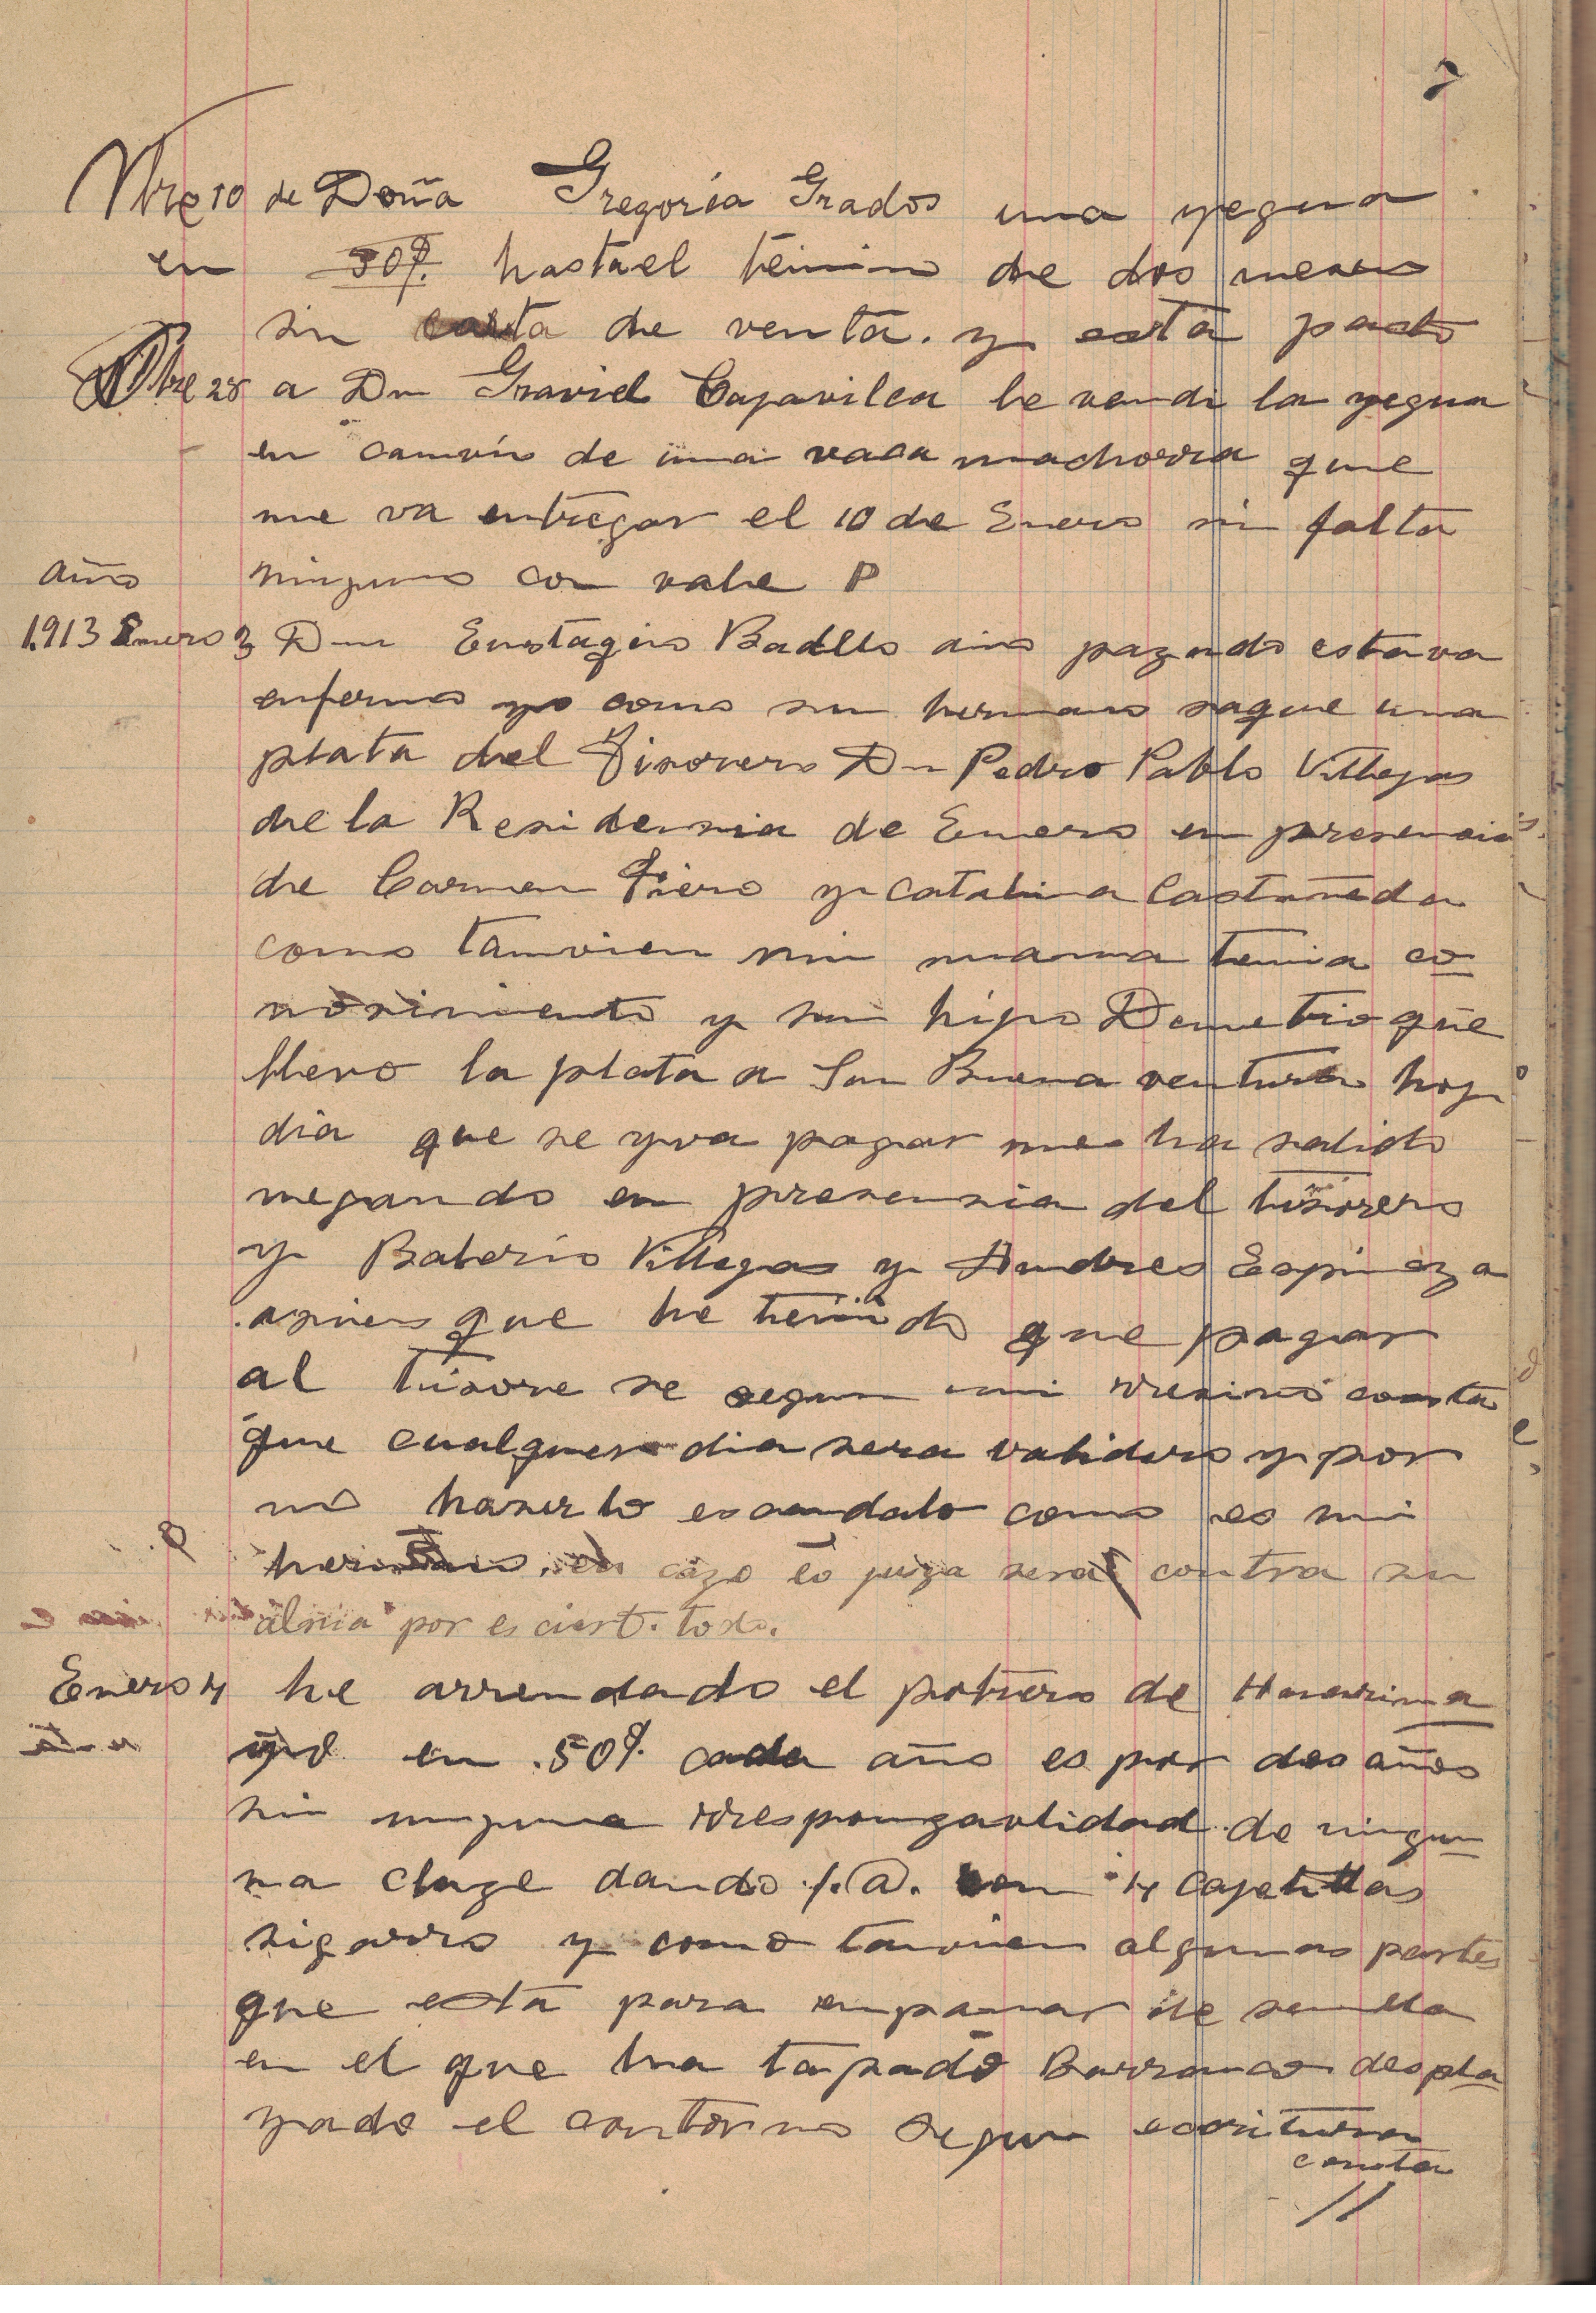 Nbre 10 de Doña Gregoria Grados una yegua
en 50 hasta el termino de dos meses
sin carta de venta. y esta parto
Dbre 28 a Dn Graviel Cajavilca le vendi la yegua
en camvio de una vaca machorra que
me va entregar el 10 de Enero sin falta
año ninguno con vale P
1913 Enero 3 Dn Eustaqio Badllo año pazado estava
enfermo yo como su hermano saque una
plata del Tisorero Dn Pedro Pablo Villegas
de la Residensia de Enero en presencia
de Carmen Piero y Catalina Castañeda
como tamvien mi mama tenia co
nosimiento y su hijo Demetrio que
llevo la plata a San Buena ventura hoy
dia que se yva pagar me ha salido
negando en presensia del tisorero
y Balerio Villegas y Andres Espinoza
asies que he tenido que pagar
al tisore se segun mi resivo consta
que cualquer dia sera validero y por
no haserlo escandalo como es mi
hermano, en cazo es juiza sera contra su
alma por es ciert. todo.
Enero 4 he arrendado el potrero de Huarima
yo en .50 cada año es por dos años
sin ninguna rresponzavlidad de ningu
na claze dando con 4 cajetillas
sigarro y como tanvien algunas partes
que esta para enpanar de semilla
en el que ha tapado Barranco despla
yado el contorno segun escritura
consta
//